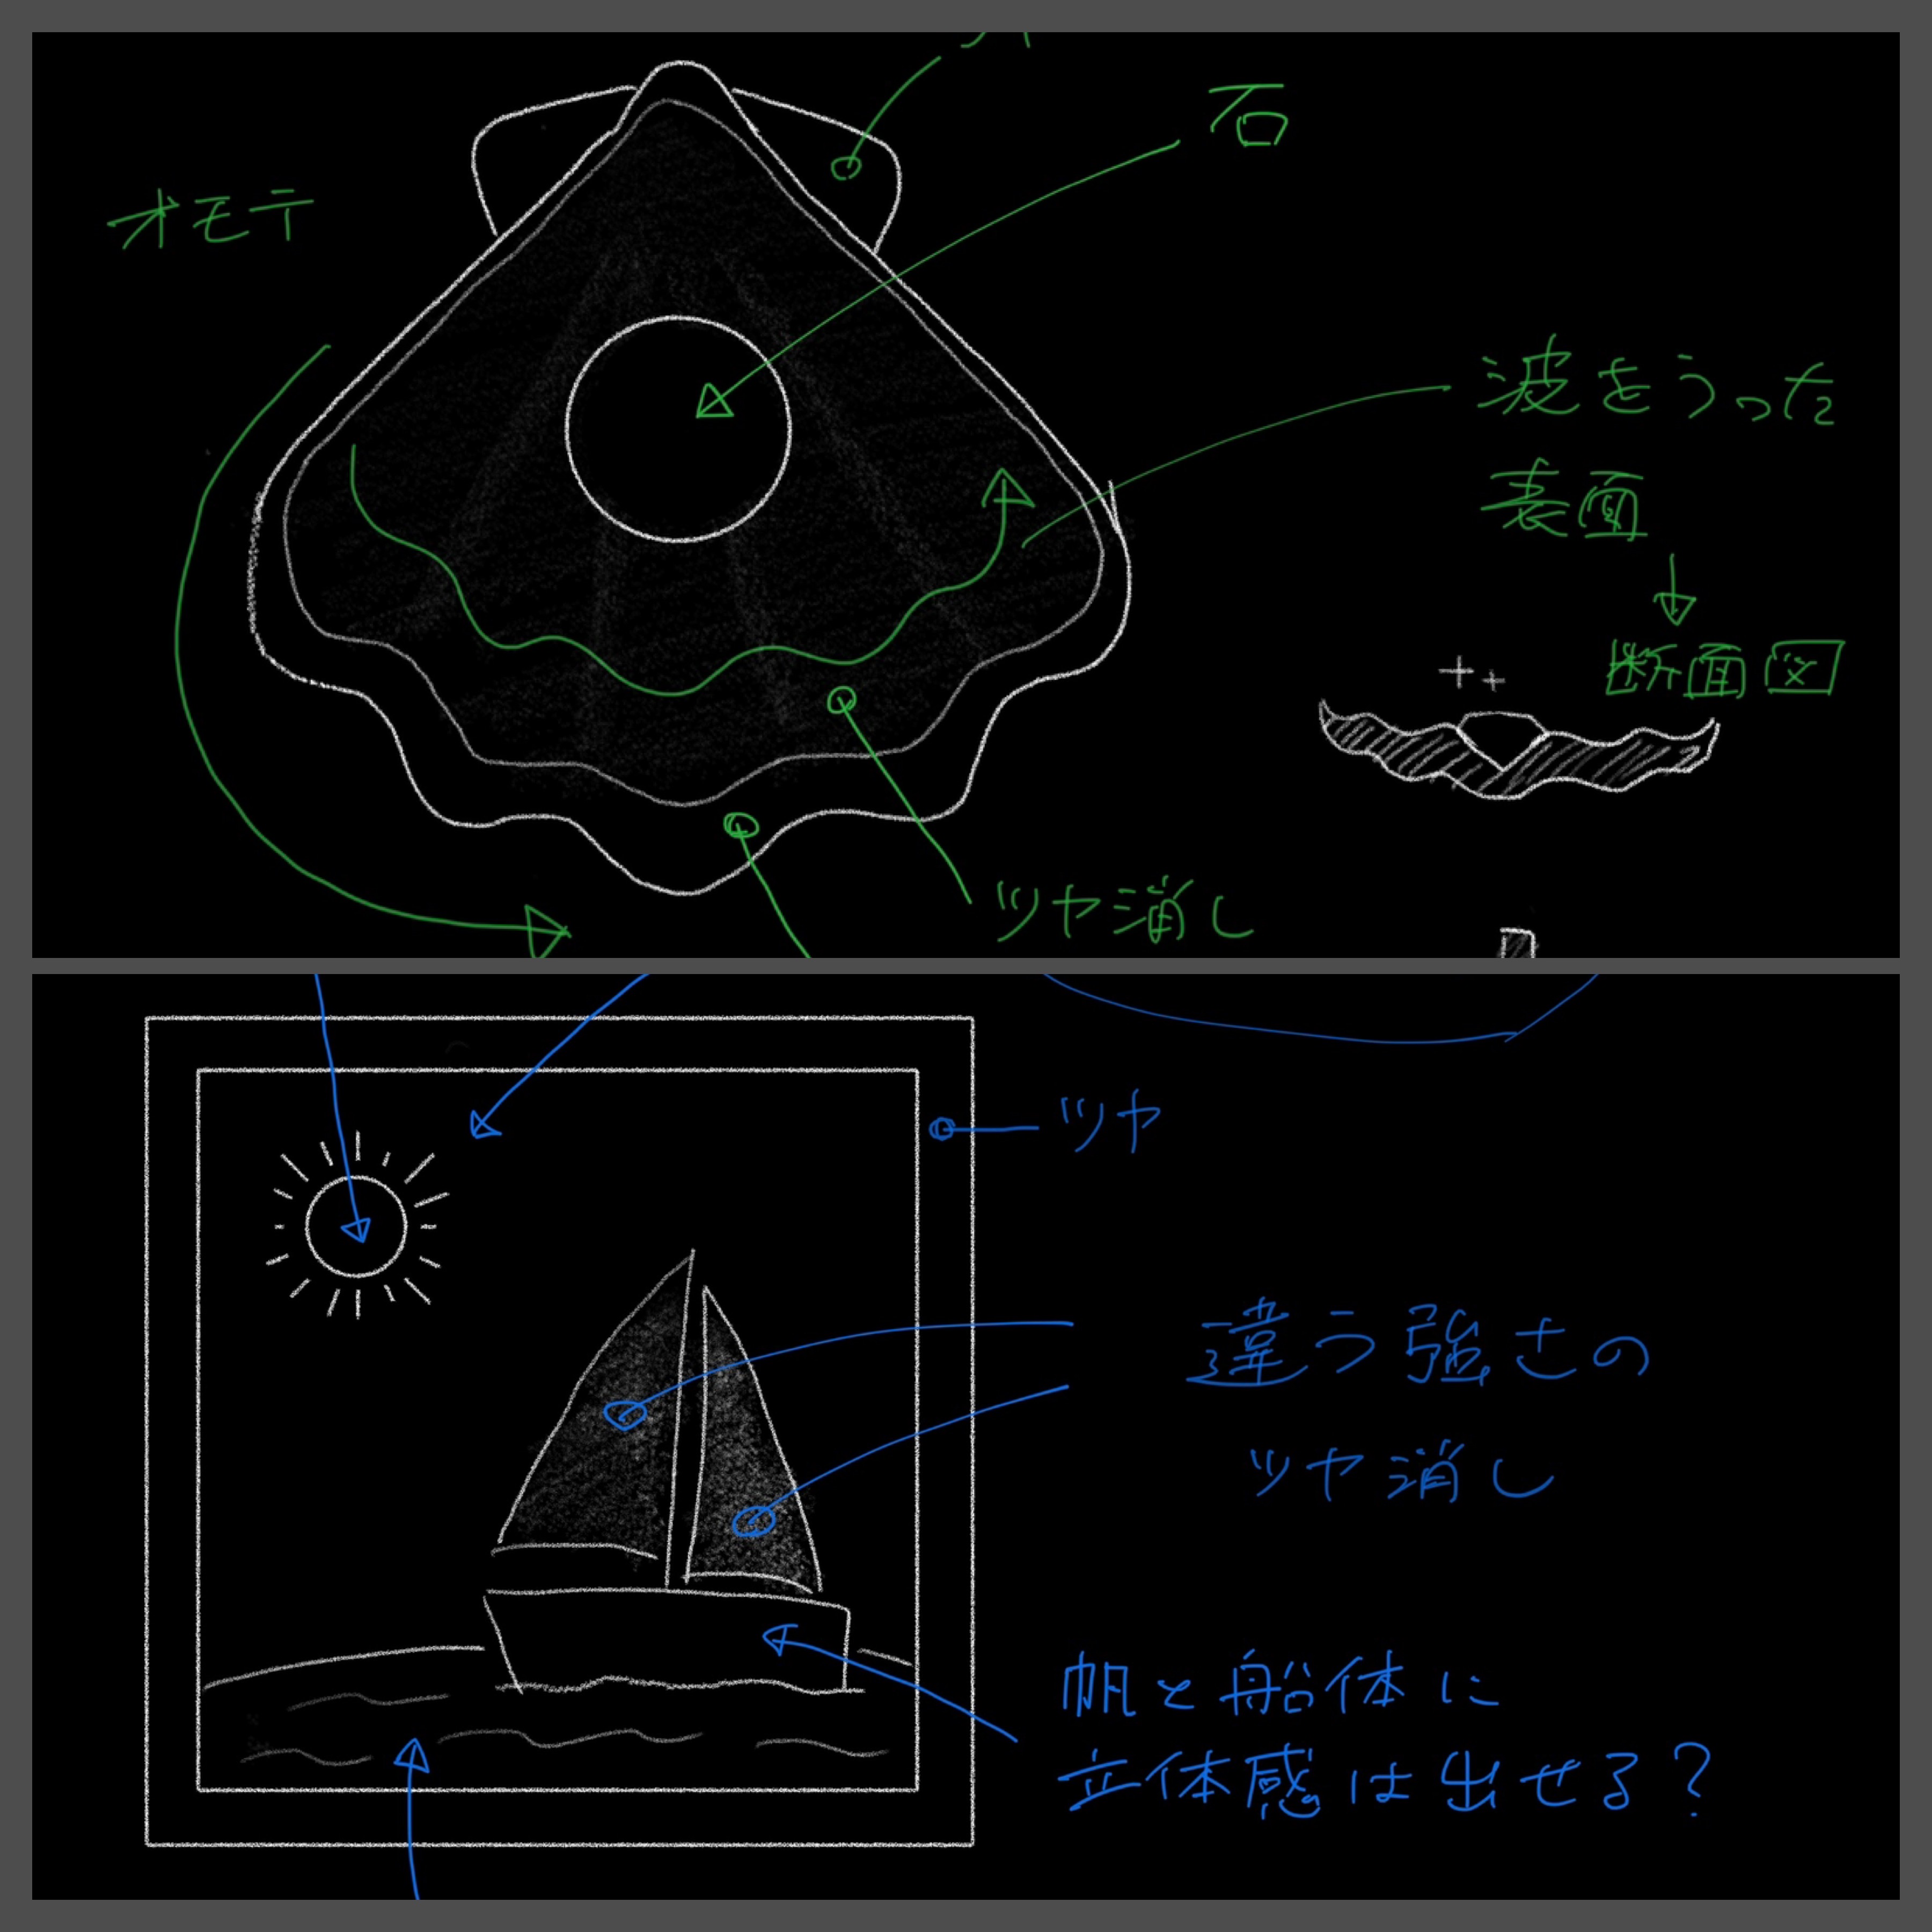 石
オモテ
波をうった
表面
断面図
ツヤ消し
ツヤ
違う強さの
ツヤ消し
帆と船体に
立体感は出せる?